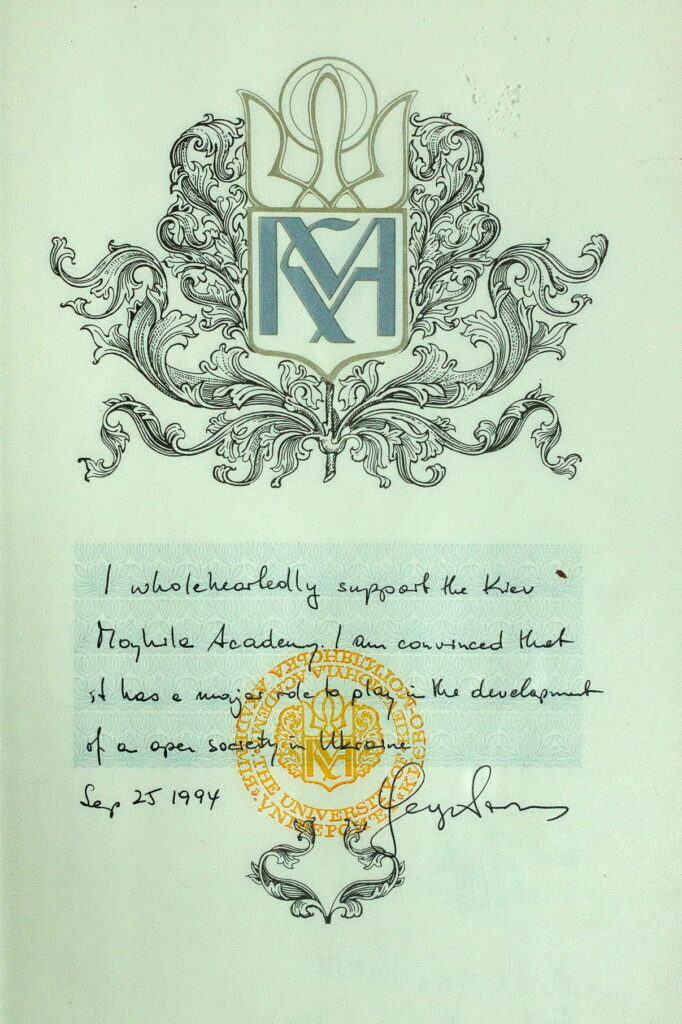 KMA
I wholeheartedly support the Kiev
Moghila Academy. I am convinced that
it has a major role to play in the development
of a open society in Ukraine
Sep 25 1994
THE UNIVERSITY OF